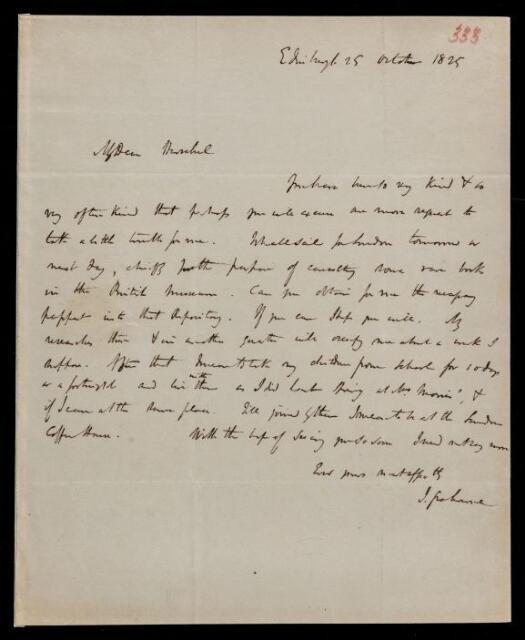 333
Edinburgh 25 October 1825
My Dear Herschel
You have been so very kind & so
very often kind that perhaps you will excuse one more request to
take a little trouble for me. I shall sail for London tomorrow or
next day, chiefly for the purpose of consulting some rare books
in the British Museum. Can you obtain for me the necessary
passport into that Repository. If you can I hope you will. My
researches there & in another quarter will occupy me about a week I
suppose. After that I mean to take my children from school for 10 days
or a fortnight and live with them as I did last Spring at Mrs Morris', &
if I can at the same place. Till joined by them I mean to be at the London
Coffee House. With the hope of seeing you so soon I need not say more
Ever yours most affectly
J. Grahame